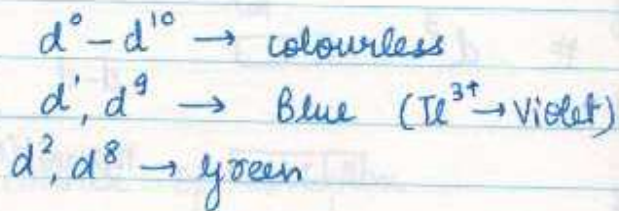 d⁰ - d¹⁰ → colourless
d¹, d⁹ → Blue (Ti³⁺ → Violet)
d², d⁸ → green